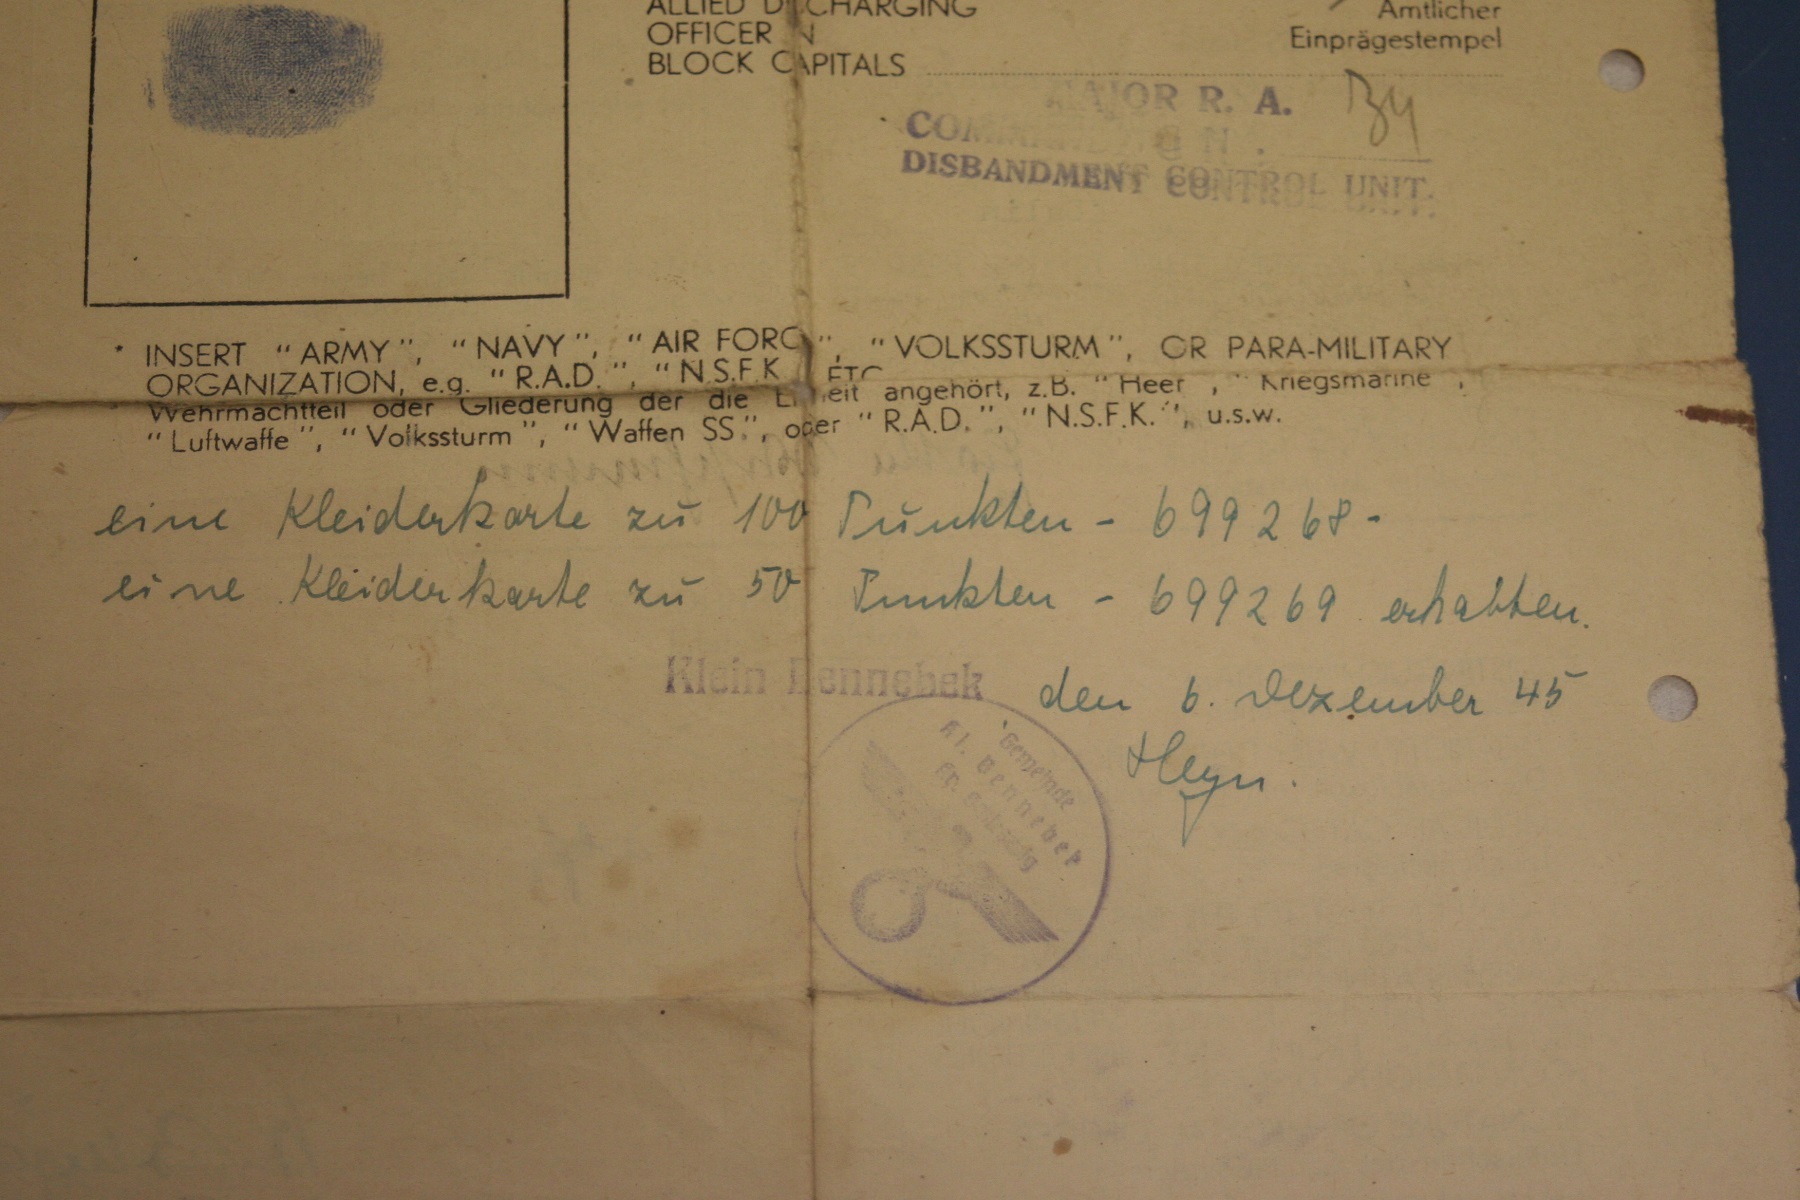 ALLIED DISCHARGING
OFFICER IN
BLOCK CAPITALS
Amtlicher
Einprägestempel
MAJOR R. A.
DISBANDMENT CONTROL UNIT.
* INSERT “ARMY”, “NAVY”, “AIR FORC ”, “VOLKSSTURM”, OR PARA-MILITARY
ORGANIZATION, e.g. “R.A.D.”, “N.S.F.K ETC
Wehrmachtteil oder Gliederung der die Einheit angehört, z.B. “Heer”, “Kriegsmarine”,
“Luftwaffe”, “Volkssturm”, “Waffen SS”, oder “R.A.D.”, “N.S.F.K.”, u.s.w.
eine Kleiderkarte zu 100 Punkten - 699268-
eine Kleiderkarte zu 50 Punkten - 699269 erhalten.
Klein Bennebek
den 6. Dezember 45
Heyn.
Gemeinde
Kl. Bennebek